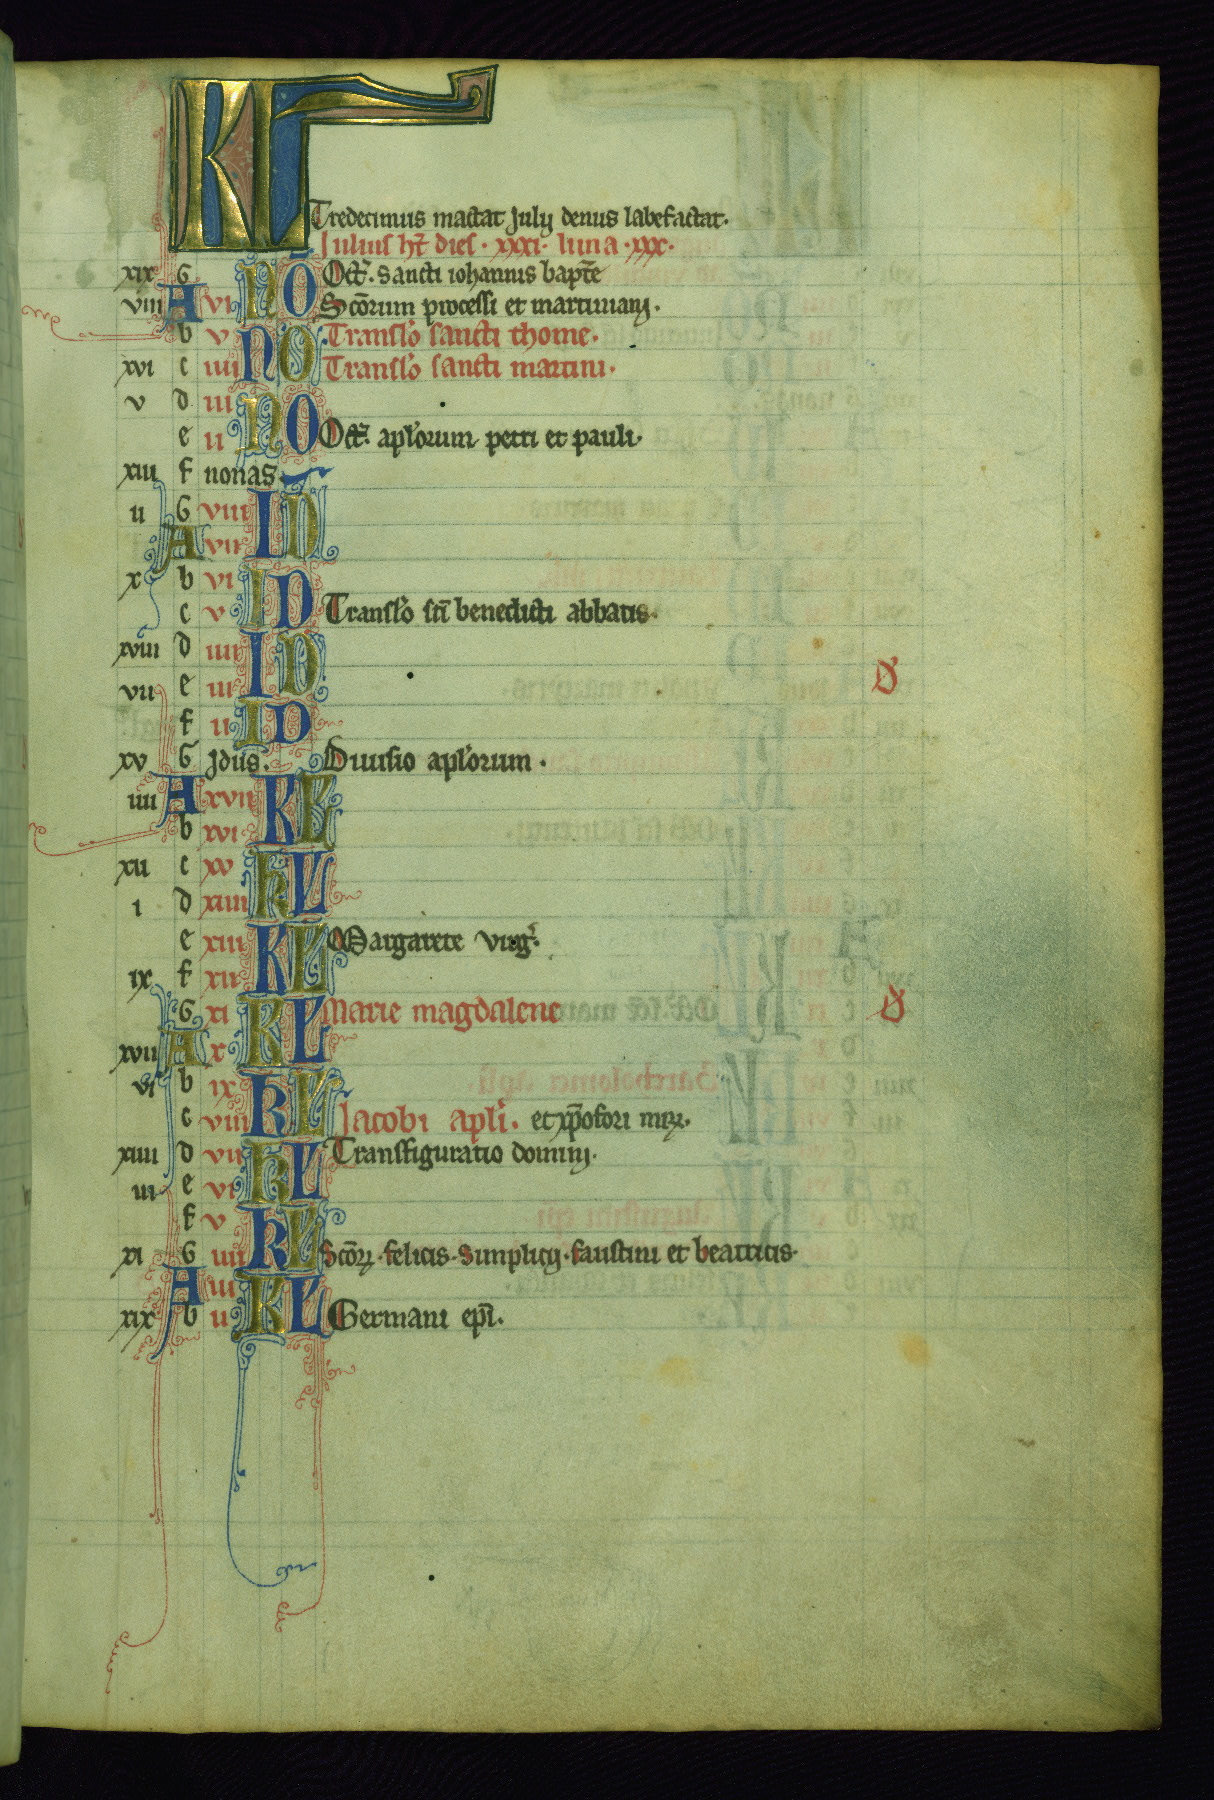 KL
Tredecimus mactat Julij denus labefactat.
Iulius ht̄ dies · xxxi · luna · xxx ·
xix G Oct̄. sancti iohannis bapt̄e
viii A vi NO Sc̄orum processi et martiniani.
b v Transl̄o sancti thome.
xvi c iiii NO Transl̄o sancti martini.
v d iii
e ii NO Oct̄. apl̄orum petri et pauli.
xiii f nonas
ii G viii
A vii ID
x b vi
c v ID Transl̄o sc̄i benedicti abbatis.
xviii d iiii
vii e iii ID
f ii ID
xv G Idus. Diuisio apl̄orum.
iiii A xvii
b xvi KL
xii c xv
i d xiiii KL
e xiii Margarete virḡ.
ix f xii KL
G xi Marie magdalene
xvii A x KL
vi b ix
c viii KL Jacobi apl̄i. et xp̄ofori mr̄ꝝ.
xiiii d vii Transfiguratio domini.
iii e vi KL
f v
xi G iiii KL Sc̄oꝝ. felicis. Simplicij. faustini et beatricis.
A iii
xix b ii KL Germani ep̄i.